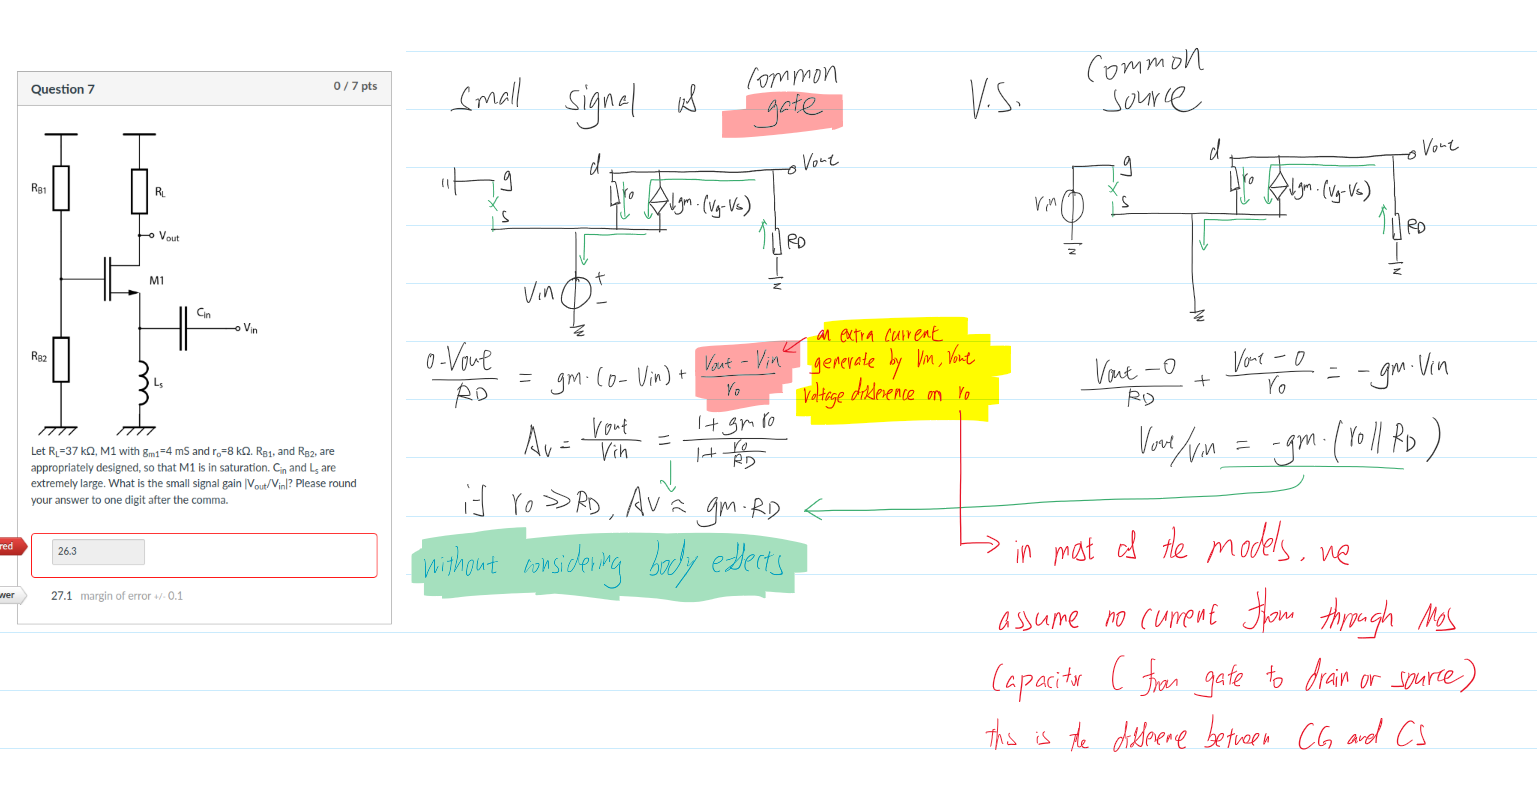 Question 7
0 / 7 pts
RB1
RL
Vout
M1
Cin
Vin
RB2
Ls
Let RL=37 kΩ, M1 with gm1=4 mS and ro=8 kΩ. RB1, and RB2, are
appropriately designed, so that M1 is in saturation. Cin and Ls are
extremely large. What is the small signal gain |Vout/Vin|? Please round
your answer to one digit after the comma.
red
26.3
wer
27.1 margin of error +/- 0.1
Small signal of common gate
V.S. Common source
d
Vout
g
s
ro
gm·(Vg-Vs)
RD
Vin
+
-
d
Vout
g
s
Vin
ro
gm·(Vg-Vs)
RD
(0-Vout)/RD = gm·(0-Vin) + (Vout-Vin)/ro
an extra current
generate by Vin, Vout
Voltage difference on ro
Av = Vout/Vin = (1+gm ro)/(1+ro/RD)
if ro >> RD, Av ≈ gm·RD
without considering body effects
(Vout-0)/RD + (Vout-0)/ro = -gm·Vin
Vout/Vin = -gm·(ro || RD)
in most of the models, we
assume no current flow through Mos
Capacitor ( from gate to drain or source)
this is the difference between CG and CS